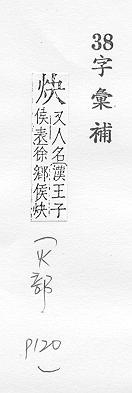 38字彙補
炔
又人名漢王子
侯表徐鄉侯炔
(火部 P120)